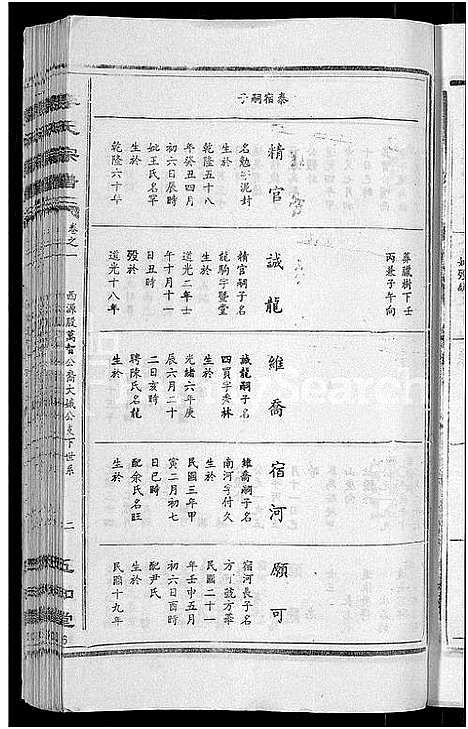 泰宿嗣子
精官
名勉 泥封
生於
乾隆五十八
年癸丑四月
初六日辰時
妣王氏名罕
生於
乾隆六十年
葬臘樹下壬
丙兼子午向
誠龍
精官嗣子名
龍駒字暨堂
生於
道光二年壬
午十月十一
日丑時
歿於
道光十八年
維喬
誠龍嗣子名
四買字秀林
生於
光緒六年庚
辰六月二十
二日亥時
聘陳氏名龍
生於
宿河
維喬嗣子名
南河字付久
生於
民國三年甲
寅二月初七
日巳時
配余氏名旺
生於
願可
宿河長子名
方可號方華
生於
民國二十一
年壬申五月
初六日酉時
配尹氏
生於
民國十九年
氏宗譜
卷之一
西源殷萬 公裔大 公支下世系
二
五 堂